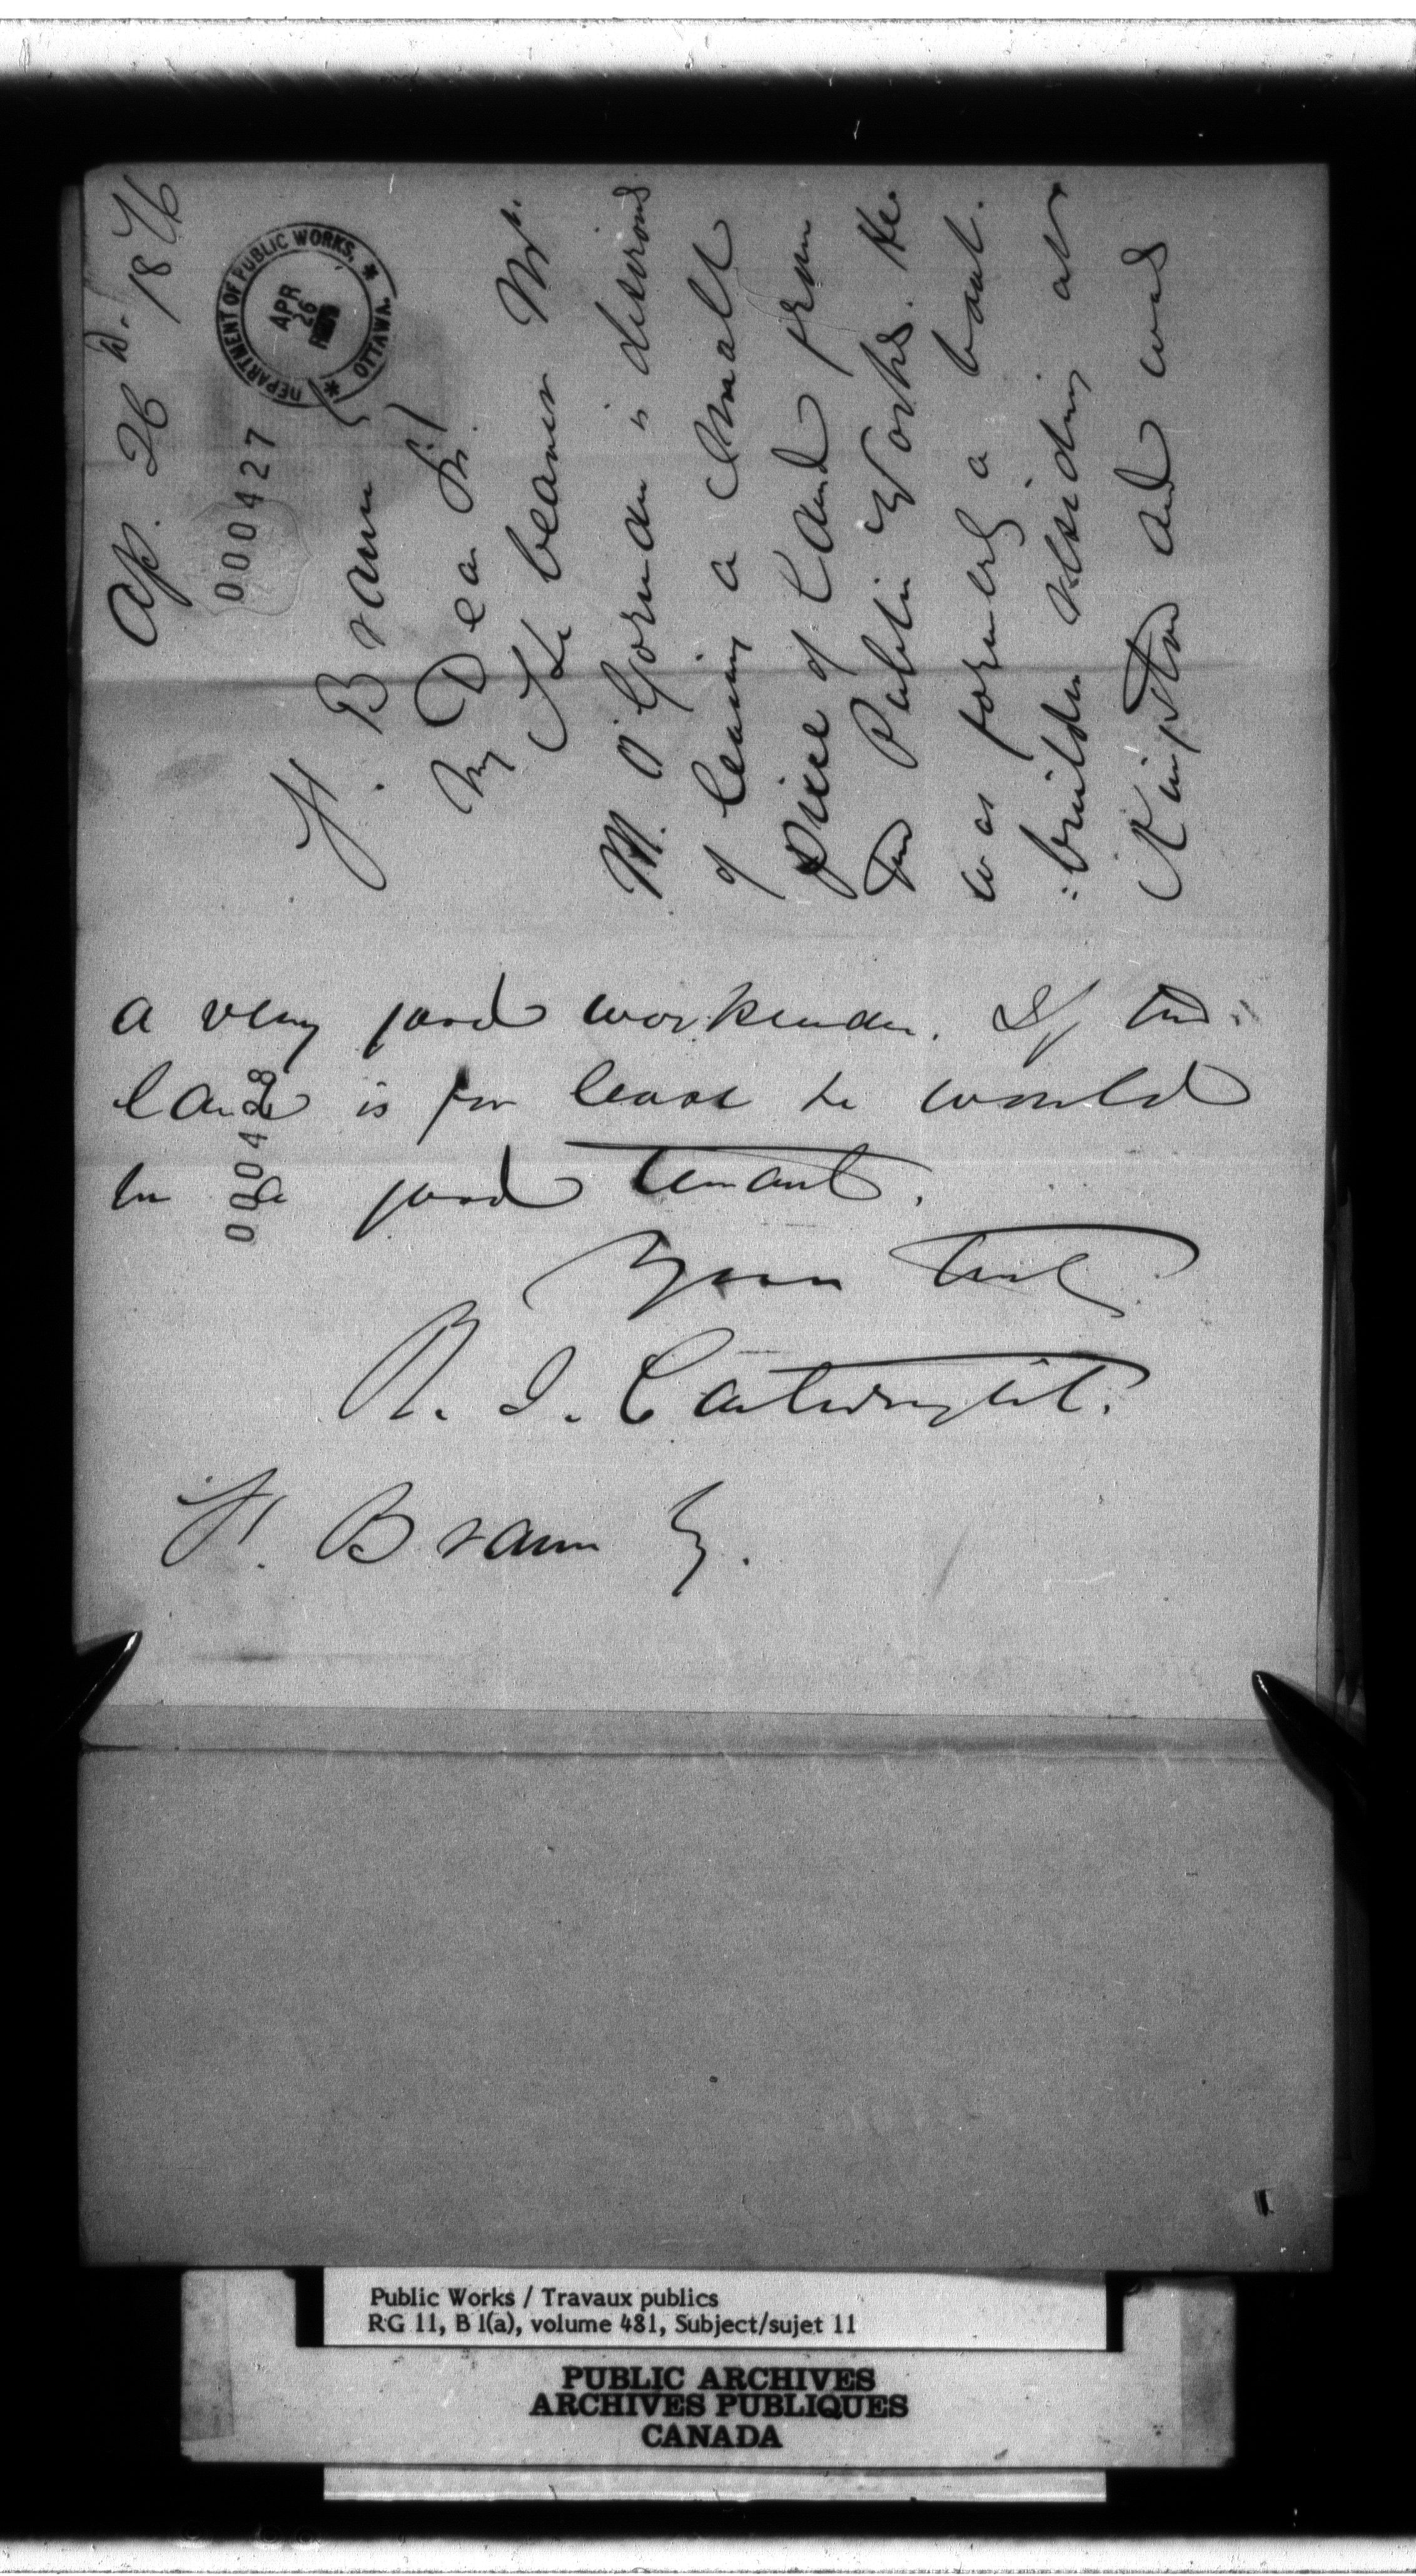 Ap. 26 D. 1876
000427
DEPARTMENT OF PUBLIC WORKS.
APR
26
OTTAWA.
F. Braun
My Dear Sir
The bearer Mr.
M. O'Gorman is desirous
of leasing a small
piece of land from
the Public Works. He
was formerly a boat
:builder residing at
Kingston and was
a very good workman. If the
land is for lease he would
be a good tenant.
000428
Yours truly
R. J. Cartwright.
F. Braun Esq.
Public Works / Travaux publics
RG 11, B 1(a), volume 481, Subject/sujet 11
PUBLIC ARCHIVES
ARCHIVES PUBLIQUES
CANADA